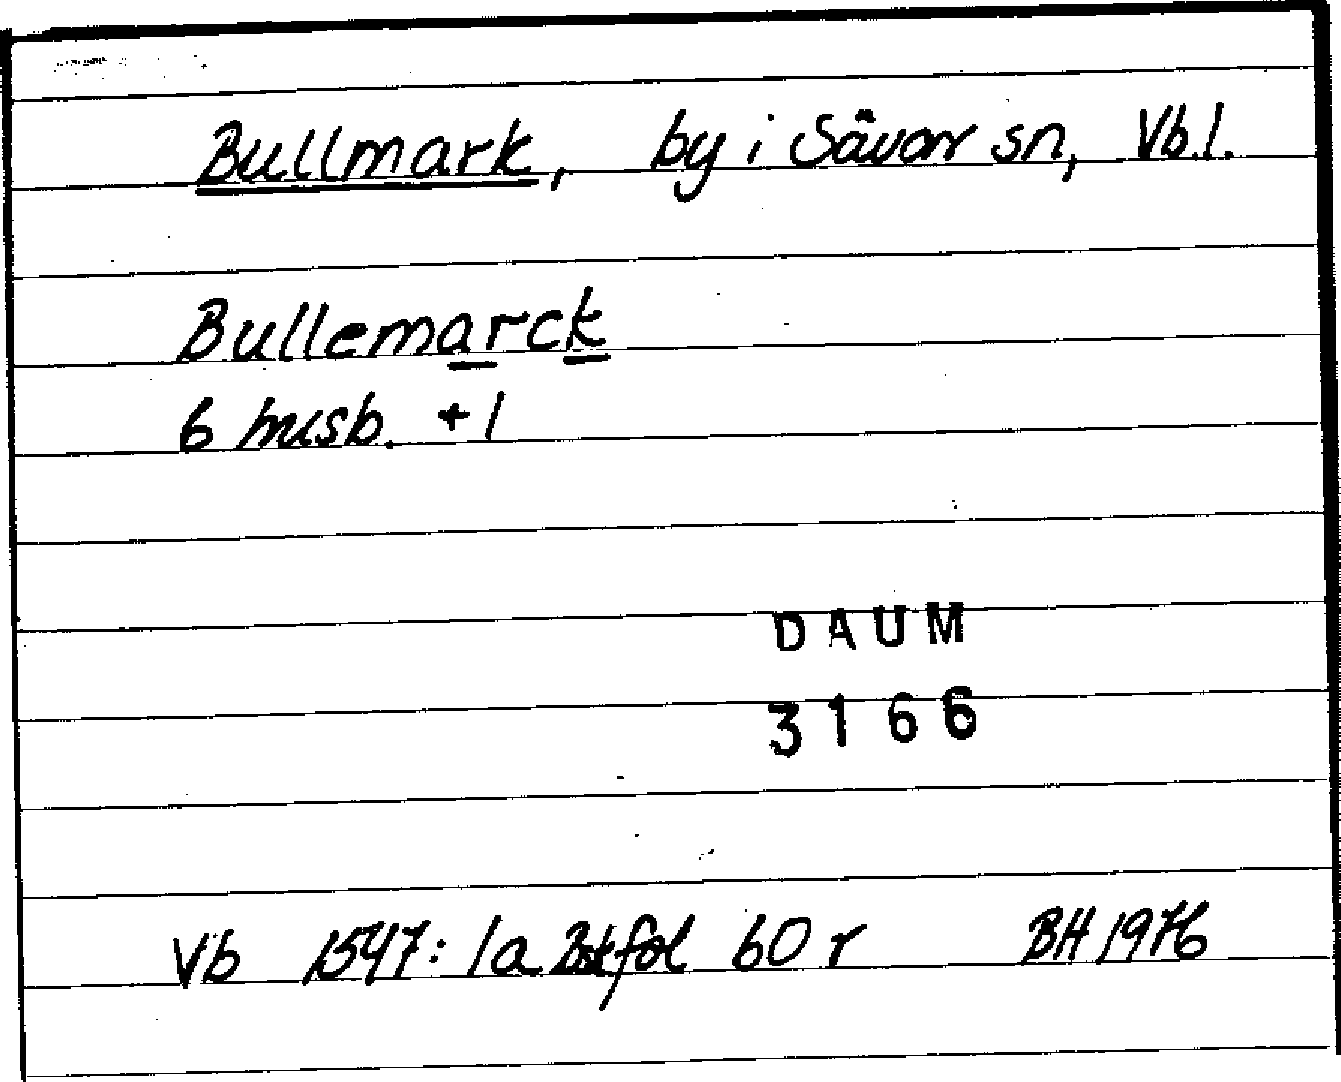 Bullmark, by i Sävar sn, Vb.l.
Bullemarck
6 husb. + 1
DAUM
3166
Vb 1547: 1a Bskfol 60 r BH 1976